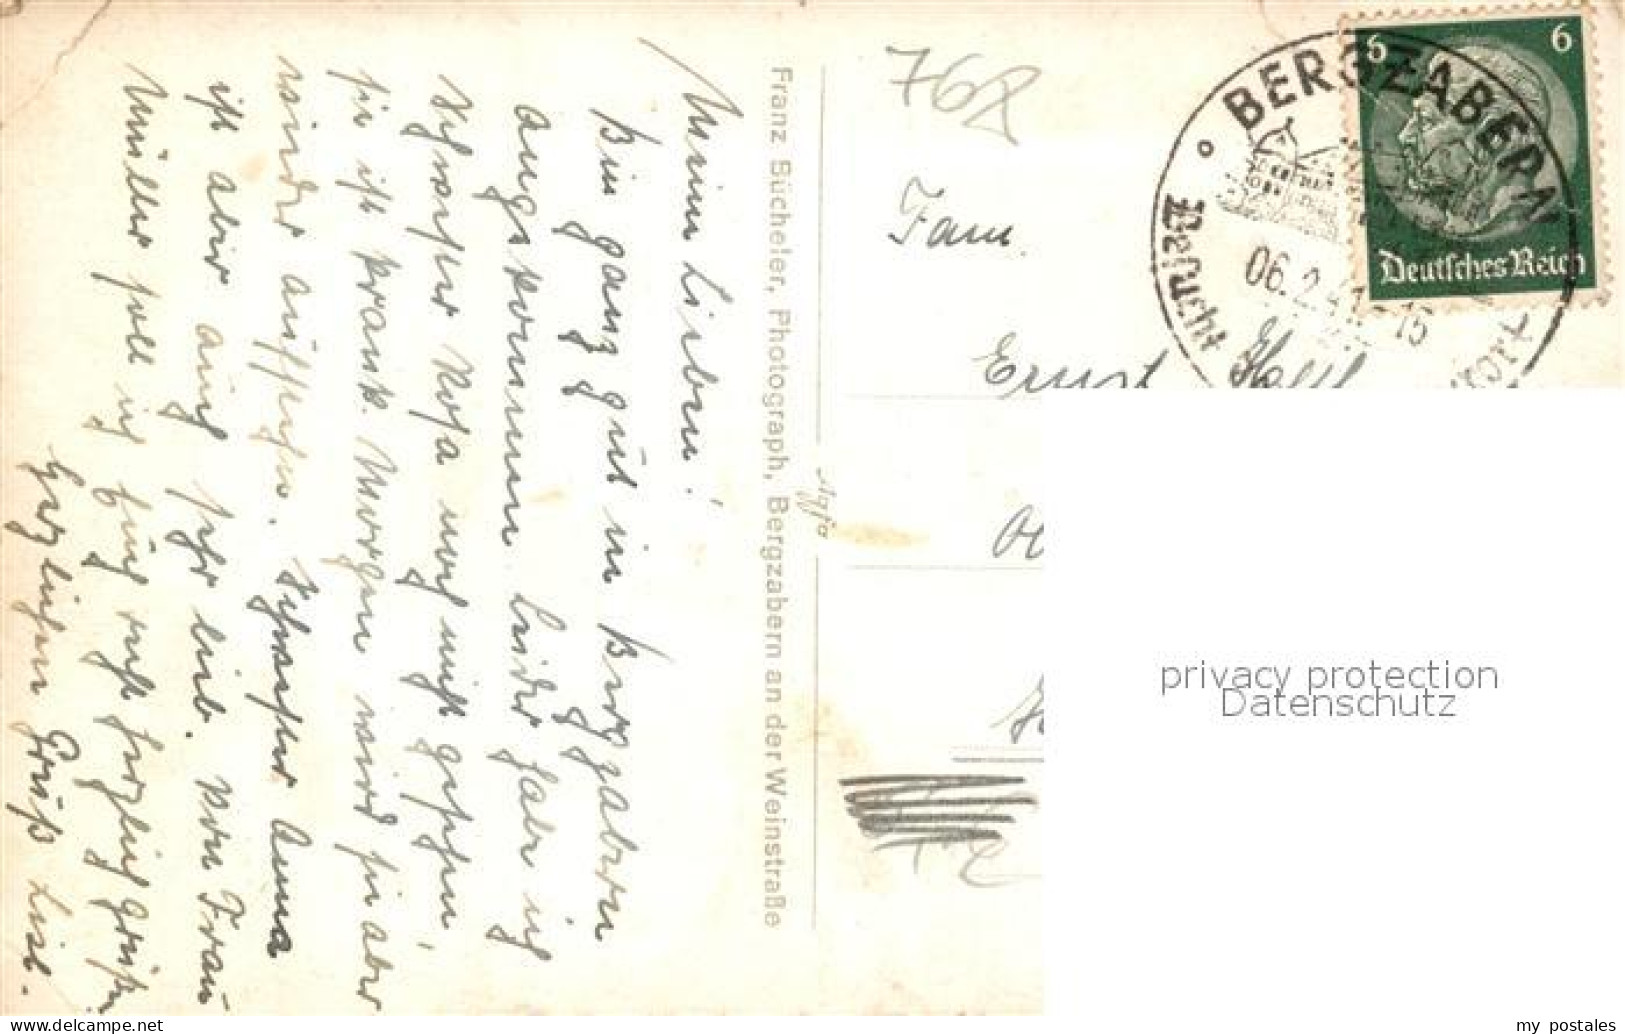 Meine Lieben!
Bin ganz gut in Bergzabern
angekommen. Leider habe ich
Schwester Rosa noch nicht gesehen
sie ist krank. Morgen wird sie aber
wieder aufstehn. Schwester Anna
ist aber auch sehr lieb. Von Frau
Müller soll ich Euch recht herzlich grüßen
Herzlichen Gruß Lisl.
Franz Bücheler, Photograph, Bergzabern an der Weinstraße
Agfa
768
Fam.
Ernst
BERGZABERN
Besucht
06.2.4
15
6 6
Deutsches Reich
privacy protection
Datenschutz
my_postales